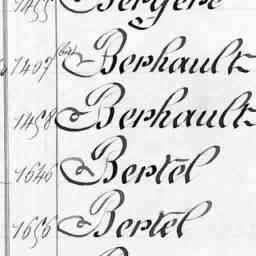 1455 Bergere
1407 bis Berhault
1458 Berhault
1646 Bertel
1656 Bertel